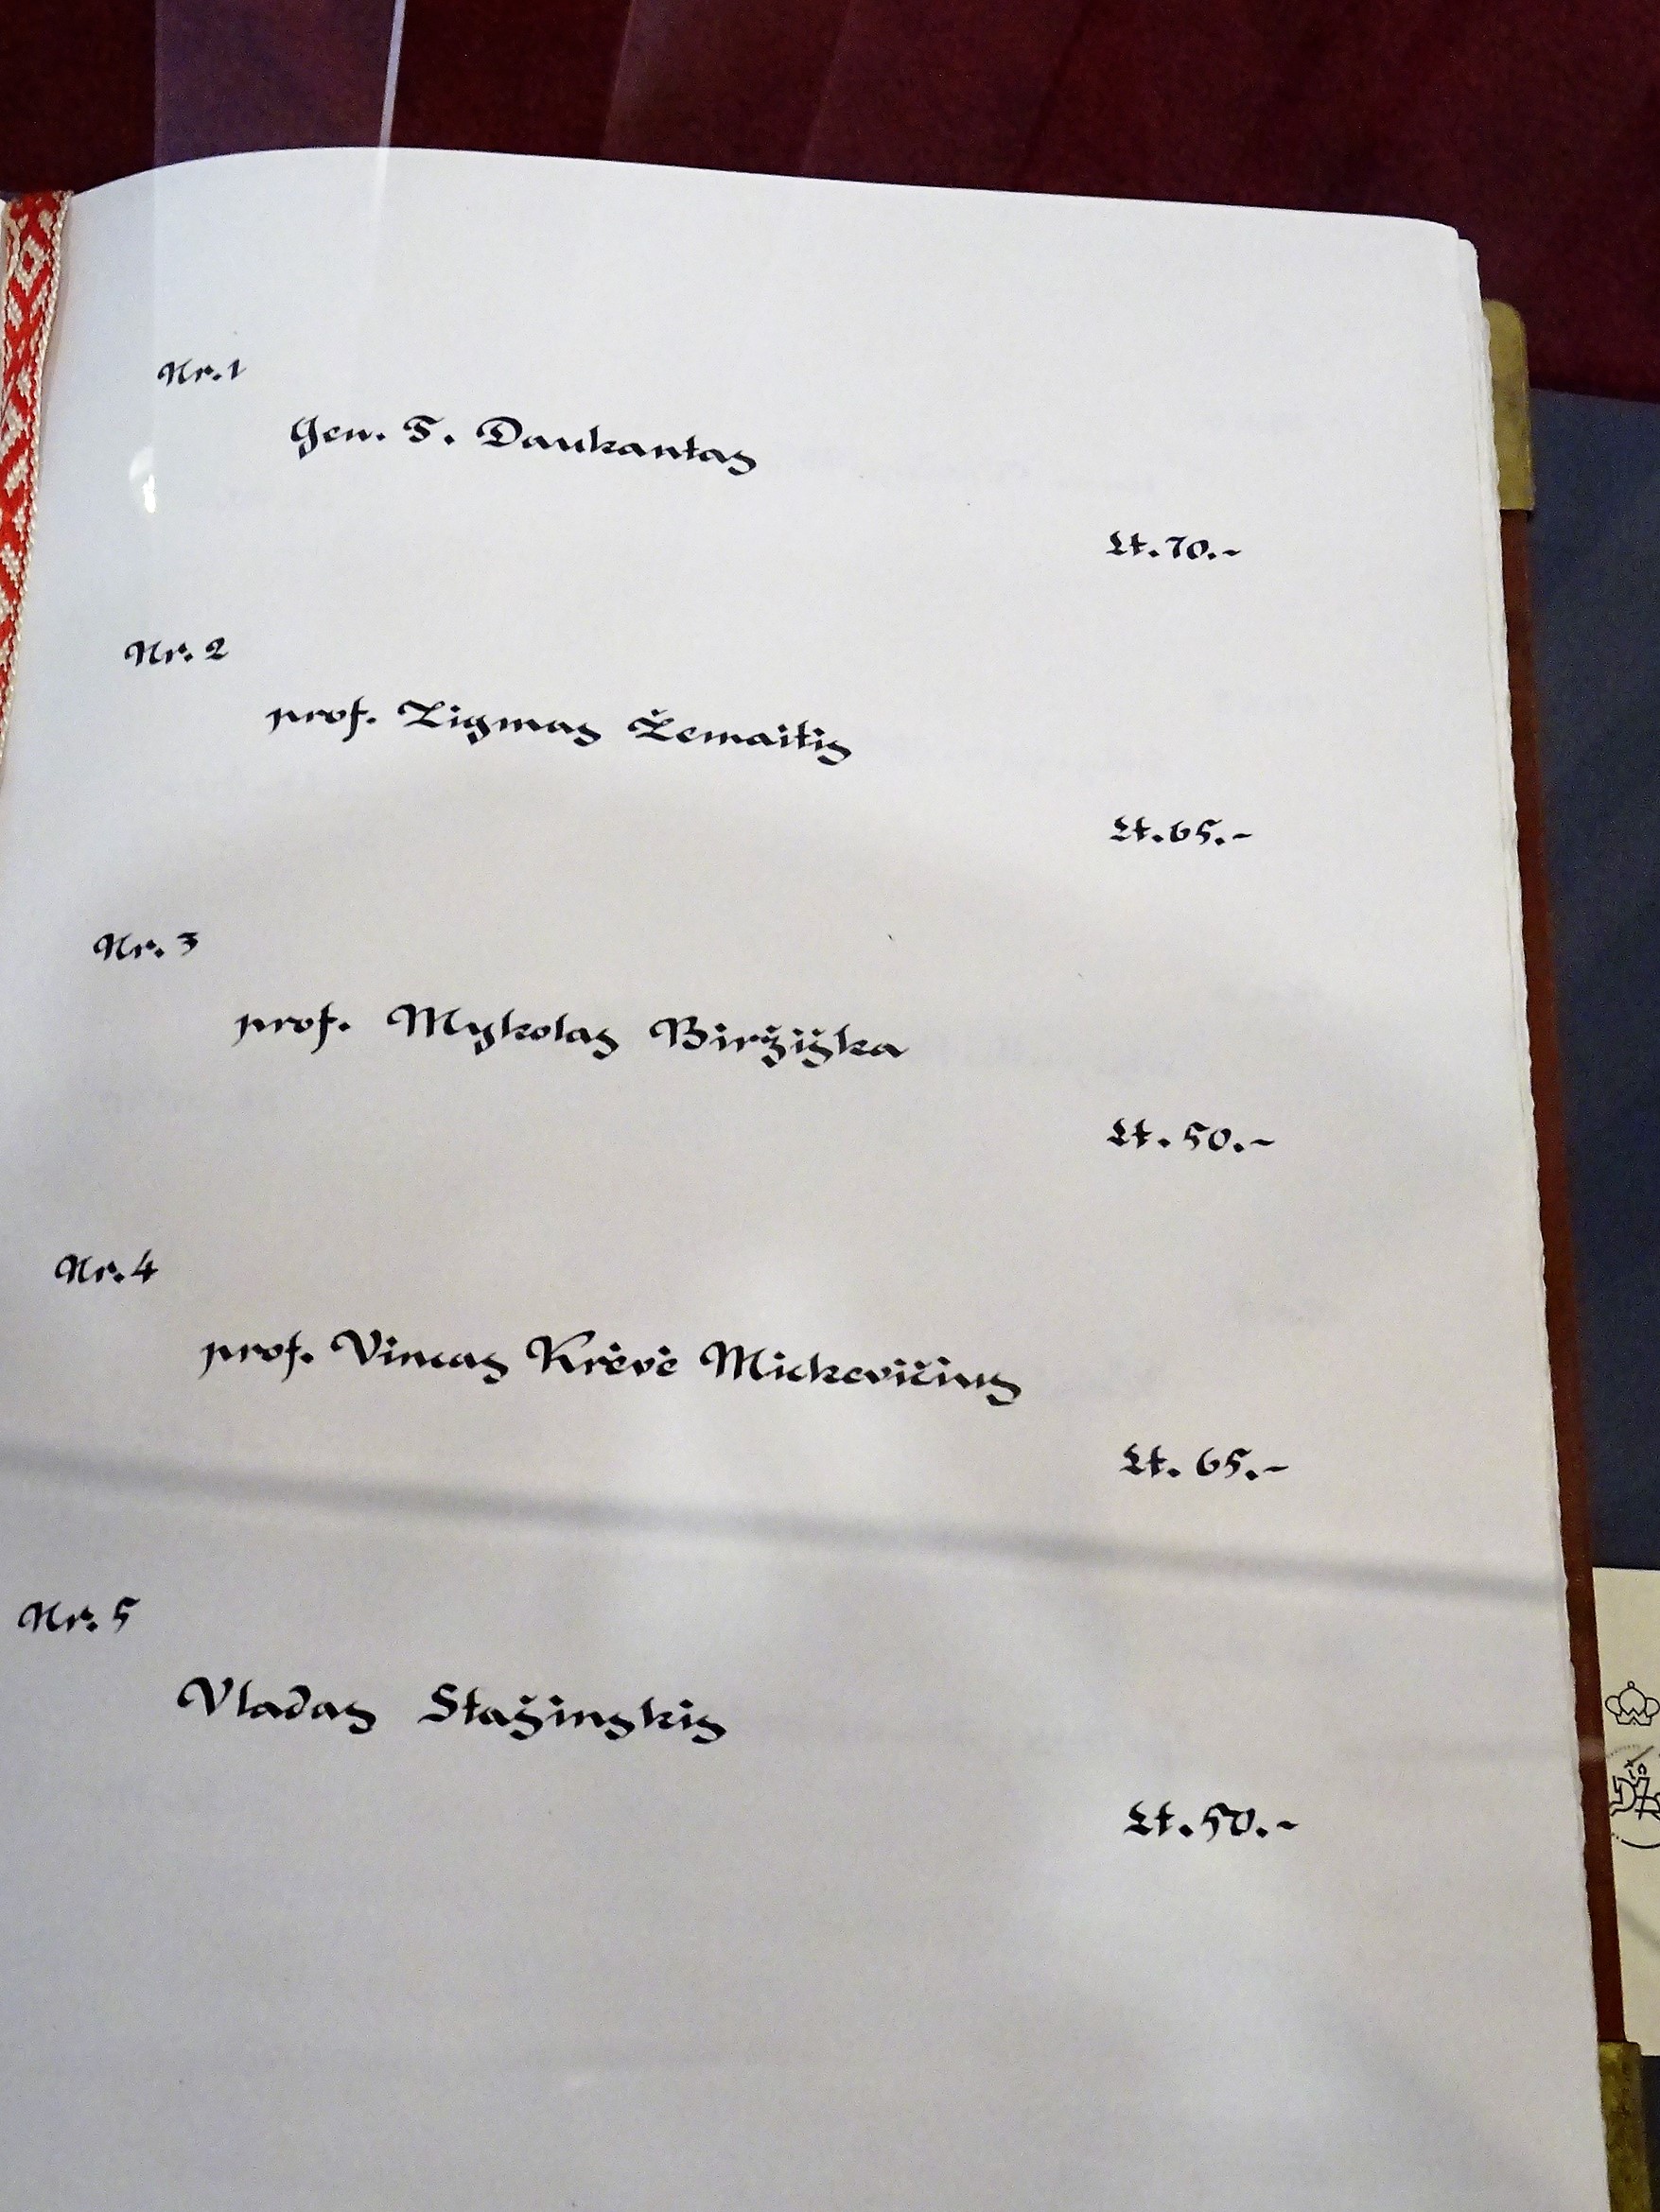 Nr. 1
Gen. T. Daukantas
Lt. 70.-
Nr. 2
prof. Zigmas Žemaitis
Lt. 65.-
Nr. 3
prof. Mykolas Biržiška
Lt. 50.-
Nr. 4
prof. Vincas Krėvė Mickevičius
Lt. 65.-
Nr. 5
Vladas Stašinskis
Lt. 50.-